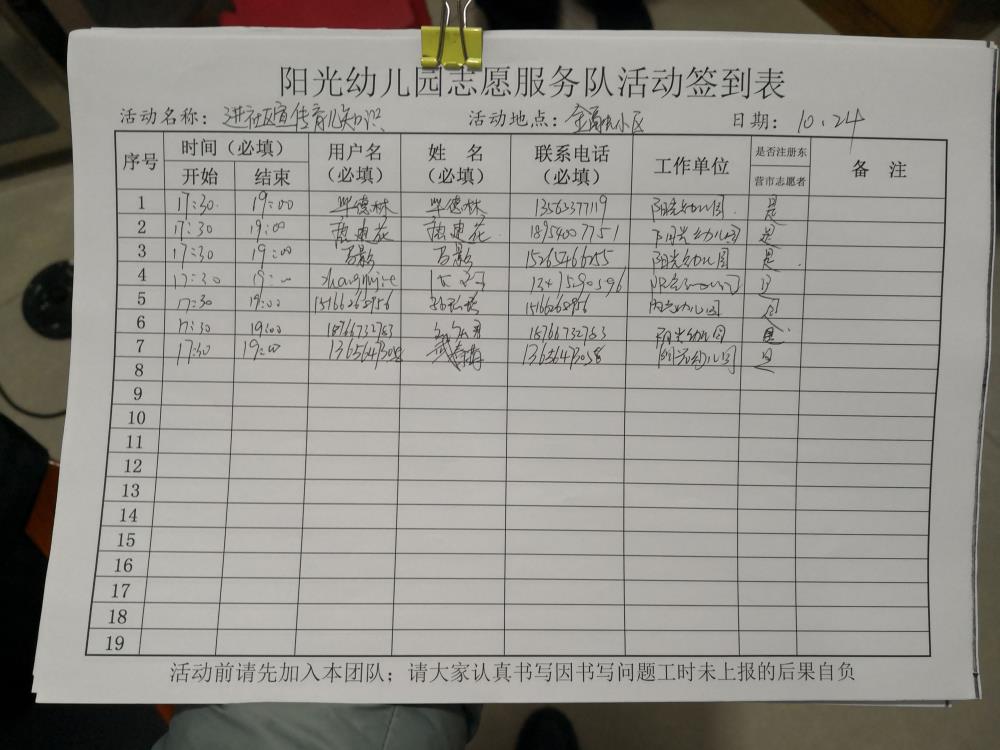 阳光幼儿园志愿服务队活动签到表
活动名称：进社区宣传育儿知识 活动地点：小区 日期：10.24
序号 时间（必填） 用户名（必填） 姓 名（必填） 联系电话（必填） 工作单位 是否注册东营市志愿者 备 注
开始 结束
1 17:30 19:00 毕德林 毕德林 13563377119 阳光幼儿园 是
2 17:30 19:00 18954007751 阳光幼儿园 是
3 17:30 19:00 15265466255 阳光幼儿园 是
4 17:30 19:00 是
5 17:30 19:00 阳光幼儿园 是
6 17:30 19:00 18766732783 18766732783 阳光幼儿园 是
7 17:30 19:00 阳光幼儿园 是
8
9
10
11
12
13
14
15
16
17
18
19
活动前请先加入本团队；请大家认真书写因书写问题工时未上报的后果自负